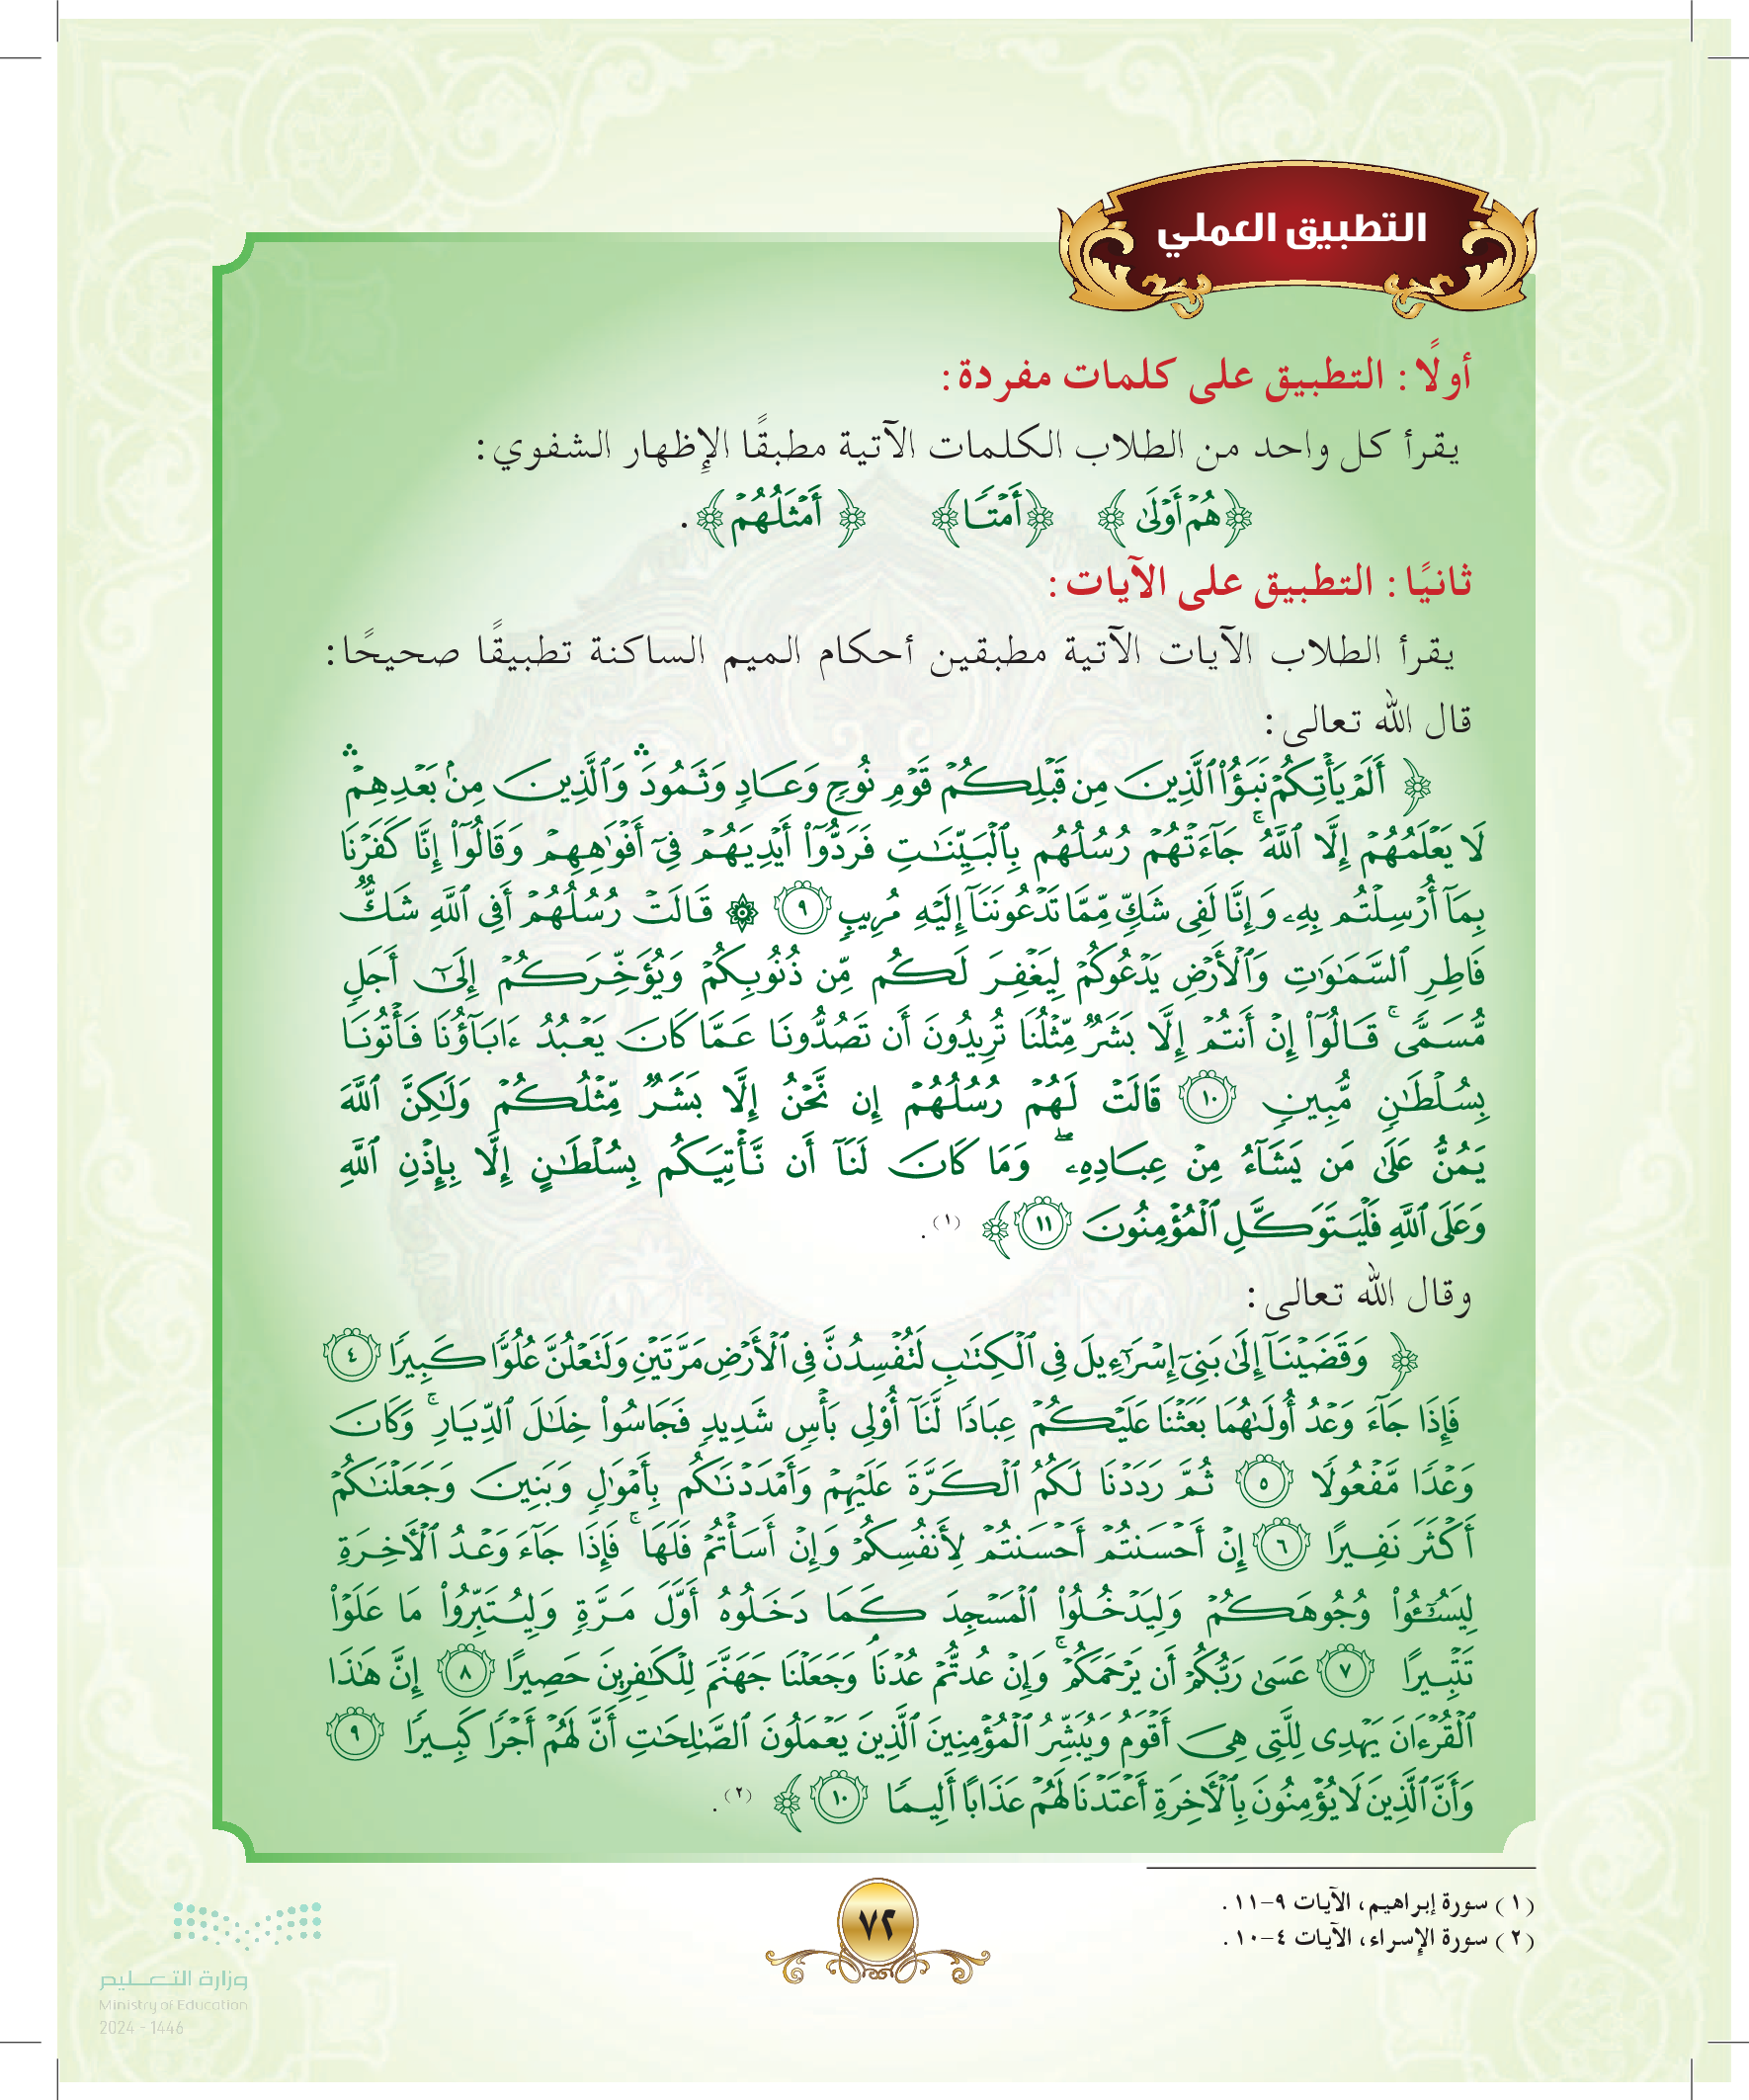 التطبيق العملي
أولًا: التطبيق على كلمات مفردة:
يقرأ كل واحد من الطلاب الكلمات الآتية مطبقًا الإِظهار الشفوي:
﴿هُمۡ أَوۡلَىٰ﴾ ﴿أَمۡتٗا﴾ ﴿أَمۡثَٰلُهُمۡ﴾.
ثانيًا: التطبيق على الآيات:
يقرأ الطلاب الآيات الآتية مطبقين أحكام الميم الساكنة تطبيقًا صحيحًا:
قال الله تعالى:
﴿أَلَمۡ يَأۡتِكُمۡ نَبَؤُاْ ٱلَّذِينَ مِن قَبۡلِكُمۡ قَوۡمِ نُوحٖ وَعَادٖ وَثَمُودَۛ وَٱلَّذِينَ مِنۢ بَعۡدِهِمۡۛ
لَا يَعۡلَمُهُمۡ إِلَّا ٱللَّهُۚ جَآءَتۡهُمۡ رُسُلُهُم بِٱلۡبَيِّنَٰتِ فَرَدُّوٓاْ أَيۡدِيَهُمۡ فِيٓ أَفۡوَٰهِهِمۡ وَقَالُوٓاْ إِنَّا كَفَرۡنَا
بِمَآ أُرۡسِلۡتُم بِهِۦ وَإِنَّا لَفِي شَكّٖ مِّمَّا تَدۡعُونَنَآ إِلَيۡهِ مُرِيبٖ ٩ ۞ قَالَتۡ رُسُلُهُمۡ أَفِي ٱللَّهِ شَكّٞ
فَاطِرِ ٱلسَّمَٰوَٰتِ وَٱلۡأَرۡضِ يَدۡعُوكُمۡ لِيَغۡفِرَ لَكُم مِّن ذُنُوبِكُمۡ وَيُؤَخِّرَكُمۡ إِلَىٰٓ أَجَلٖ
مُّسَمّٗىۚ قَالُوٓاْ إِنۡ أَنتُمۡ إِلَّا بَشَرٞ مِّثۡلُنَا تُرِيدُونَ أَن تَصُدُّونَا عَمَّا كَانَ يَعۡبُدُ ءَابَآؤُنَا فَأۡتُونَا
بِسُلۡطَٰنٖ مُّبِينٖ ١٠ قَالَتۡ لَهُمۡ رُسُلُهُمۡ إِن نَّحۡنُ إِلَّا بَشَرٞ مِّثۡلُكُمۡ وَلَٰكِنَّ ٱللَّهَ
يَمُنُّ عَلَىٰ مَن يَشَآءُ مِنۡ عِبَادِهِۦۖ وَمَا كَانَ لَنَآ أَن نَّأۡتِيَكُم بِسُلۡطَٰنٍ إِلَّا بِإِذۡنِ ٱللَّهِ
وَعَلَى ٱللَّهِ فَلۡيَتَوَكَّلِ ٱلۡمُؤۡمِنُونَ ١١﴾ (١).
وقال الله تعالى:
﴿وَقَضَيۡنَآ إِلَىٰ بَنِيٓ إِسۡرَٰٓءِيلَ فِي ٱلۡكِتَٰبِ لَتُفۡسِدُنَّ فِي ٱلۡأَرۡضِ مَرَّتَيۡنِ وَلَتَعۡلُنَّ عُلُوّٗا كَبِيرٗا ٤
فَإِذَا جَآءَ وَعۡدُ أُولَىٰهُمَا بَعَثۡنَا عَلَيۡكُمۡ عِبَادٗا لَّنَآ أُوْلِي بَأۡسٖ شَدِيدٖ فَجَاسُواْ خِلَٰلَ ٱلدِّيَارِۚ وَكَانَ
وَعۡدٗا مَّفۡعُولٗا ٥ ثُمَّ رَدَدۡنَا لَكُمُ ٱلۡكَرَّةَ عَلَيۡهِمۡ وَأَمۡدَدۡنَٰكُم بِأَمۡوَٰلٖ وَبَنِينَ وَجَعَلۡنَٰكُمۡ
أَكۡثَرَ نَفِيرًا ٦ إِنۡ أَحۡسَنتُمۡ أَحۡسَنتُمۡ لِأَنفُسِكُمۡ وَإِنۡ أَسَأۡتُمۡ فَلَهَاۚ فَإِذَا جَآءَ وَعۡدُ ٱلۡأٓخِرَةِ
لِيَسُـُٔواْ وُجُوهَكُمۡ وَلِيَدۡخُلُواْ ٱلۡمَسۡجِدَ كَمَا دَخَلُوهُ أَوَّلَ مَرَّةٖ وَلِيُتَبِّرُواْ مَا عَلَوۡاْ
تَتۡبِيرًا ٧ عَسَىٰ رَبُّكُمۡ أَن يَرۡحَمَكُمۡۚ وَإِنۡ عُدتُّمۡ عُدۡنَاۘ وَجَعَلۡنَا جَهَنَّمَ لِلۡكَٰفِرِينَ حَصِيرًا ٨ إِنَّ هَٰذَا
ٱلۡقُرۡءَانَ يَهۡدِي لِلَّتِي هِيَ أَقۡوَمُ وَيُبَشِّرُ ٱلۡمُؤۡمِنِينَ ٱلَّذِينَ يَعۡمَلُونَ ٱلصَّٰلِحَٰتِ أَنَّ لَهُمۡ أَجۡرٗا كَبِيرٗا ٩
وَأَنَّ ٱلَّذِينَ لَا يُؤۡمِنُونَ بِٱلۡأٓخِرَةِ أَعۡتَدۡنَا لَهُمۡ عَذَابًا أَلِيمٗا ١٠﴾ (٢).
(١) سورة إبراهيم، الآيات ٩-١١.
(٢) سورة الإسراء، الآيات ٤-١٠.
٧٢
وزارة التعليم
Ministry of Education
2024 - 1446